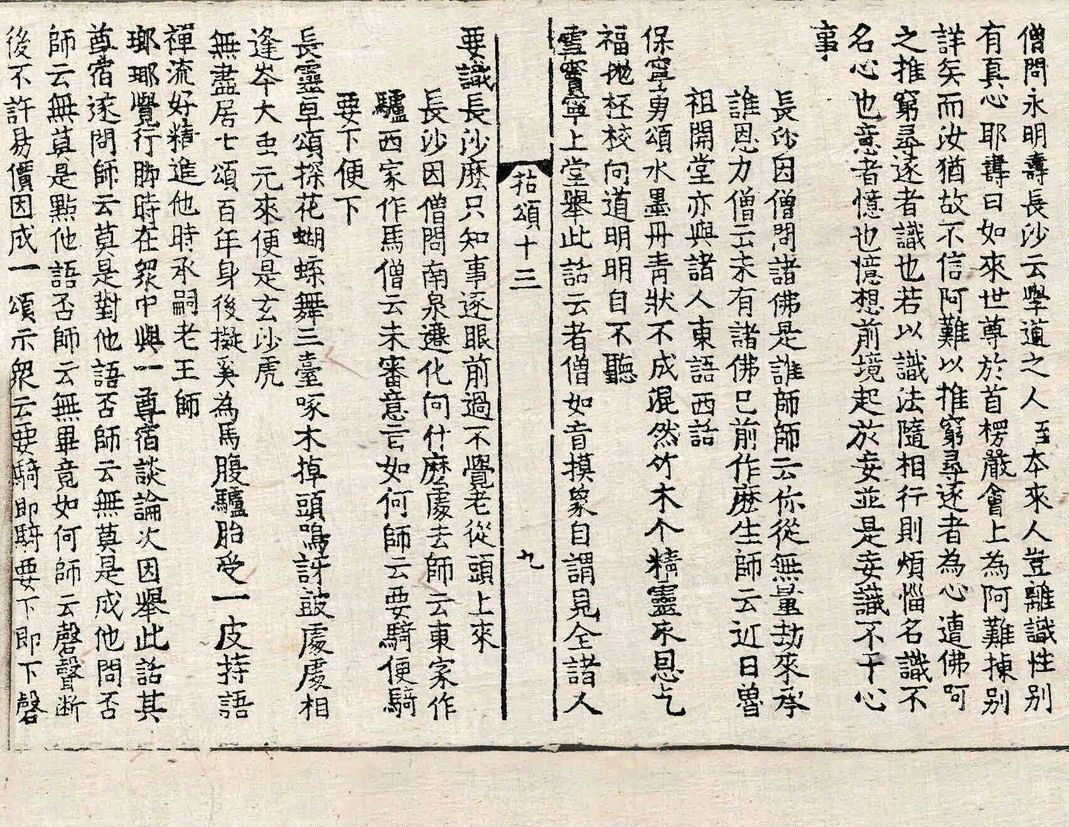 僧問永明壽長沙云學道之人至本來人豈離識性別
有真心耶壽曰如來世尊於首楞嚴會上為阿難揀别
詳矣而汝猶故不信阿難以推窮尋逐者為心遭佛呵
之推窮尋逐者識也若以識法隨相行則煩惱名識不
名心也意者憶也憶想前境起於妄並是妄識不干心
事
長沙因僧問諸佛是誰師師云你從無量劫來承
誰恩力僧云未有諸佛已前作麽生師云近日魯
祖開堂亦與諸人東語西話
保寧勇頌水墨丹青狀不成混然竹木个精靈來恩乞
福地杯校向道明明自不聽
雪竇寧上堂舉此話云者僧如盲摸象自謂見全諸人
拈頌十三 九
要識長沙麽只知事逐眼前過不覺老從頭上來
長沙因僧問南泉遷化向什麽處去師云東家作
驢西家作馬僧云未審意旨如何師云要騎便騎
要下便下
長靈卓頌探花蝴蝶舞三臺啄木掉頭鳴訝鼓處處相
逢岑大虫元來便是玄沙虎
無盡居士頌百年身後擬奚為馬腹驢胎受一皮持語
禪流好精進他時承嗣老王師
瑯瑘覺行脚時在衆中與一尊宿談論次因舉此話其
尊宿遂問師云莫是對他語否師云無莫是成他問否
師云無莫是點他語否師云無畢竟如何師云磬聲断
後不許易價因成一頌示衆云要騎即騎要下即下磬